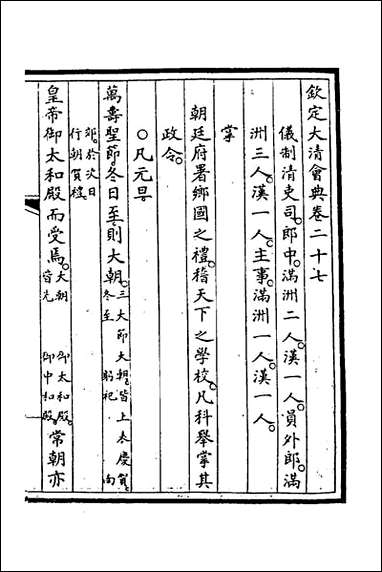 欽定大清會典卷二十七
儀制清吏司。郎中。滿洲二人。漢一人。員外郎。滿
洲三人。漢一人。主事。滿洲一人。漢一人。
掌
朝廷府署鄉國之禮。稽天下之學校。凡科舉掌其
政令。
○凡元旦
萬壽聖節。冬日至。則大朝。三大節大朝。皆上表慶賀。冬至 躬祀 南
郊。於次日行朝賀禮。
皇帝御太和殿而受焉。大朝 御太和殿。皆先 御中和殿。常朝亦